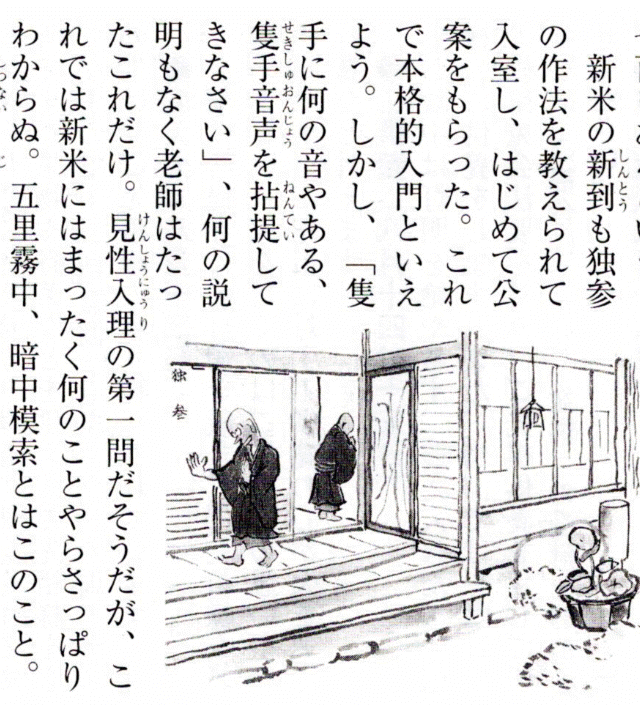 新米の新到も独参
しんとう
の作法を教えられて
入室し、はじめて公
案をもらった。これ
で本格的入門といえ
よう。しかし、「隻
手に何の音やある、
隻手音声を拈提して
せきしゅおんじょう ねんてい
きなさい」、何の説
明もなく老師はたっ
たこれだけ。見性入理の第一問だそうだが、こ
けんしょうにゅうり
れでは新米にはまったく何のことやらさっぱり
わからぬ。五里霧中、暗中模索とはこのこと。
独参